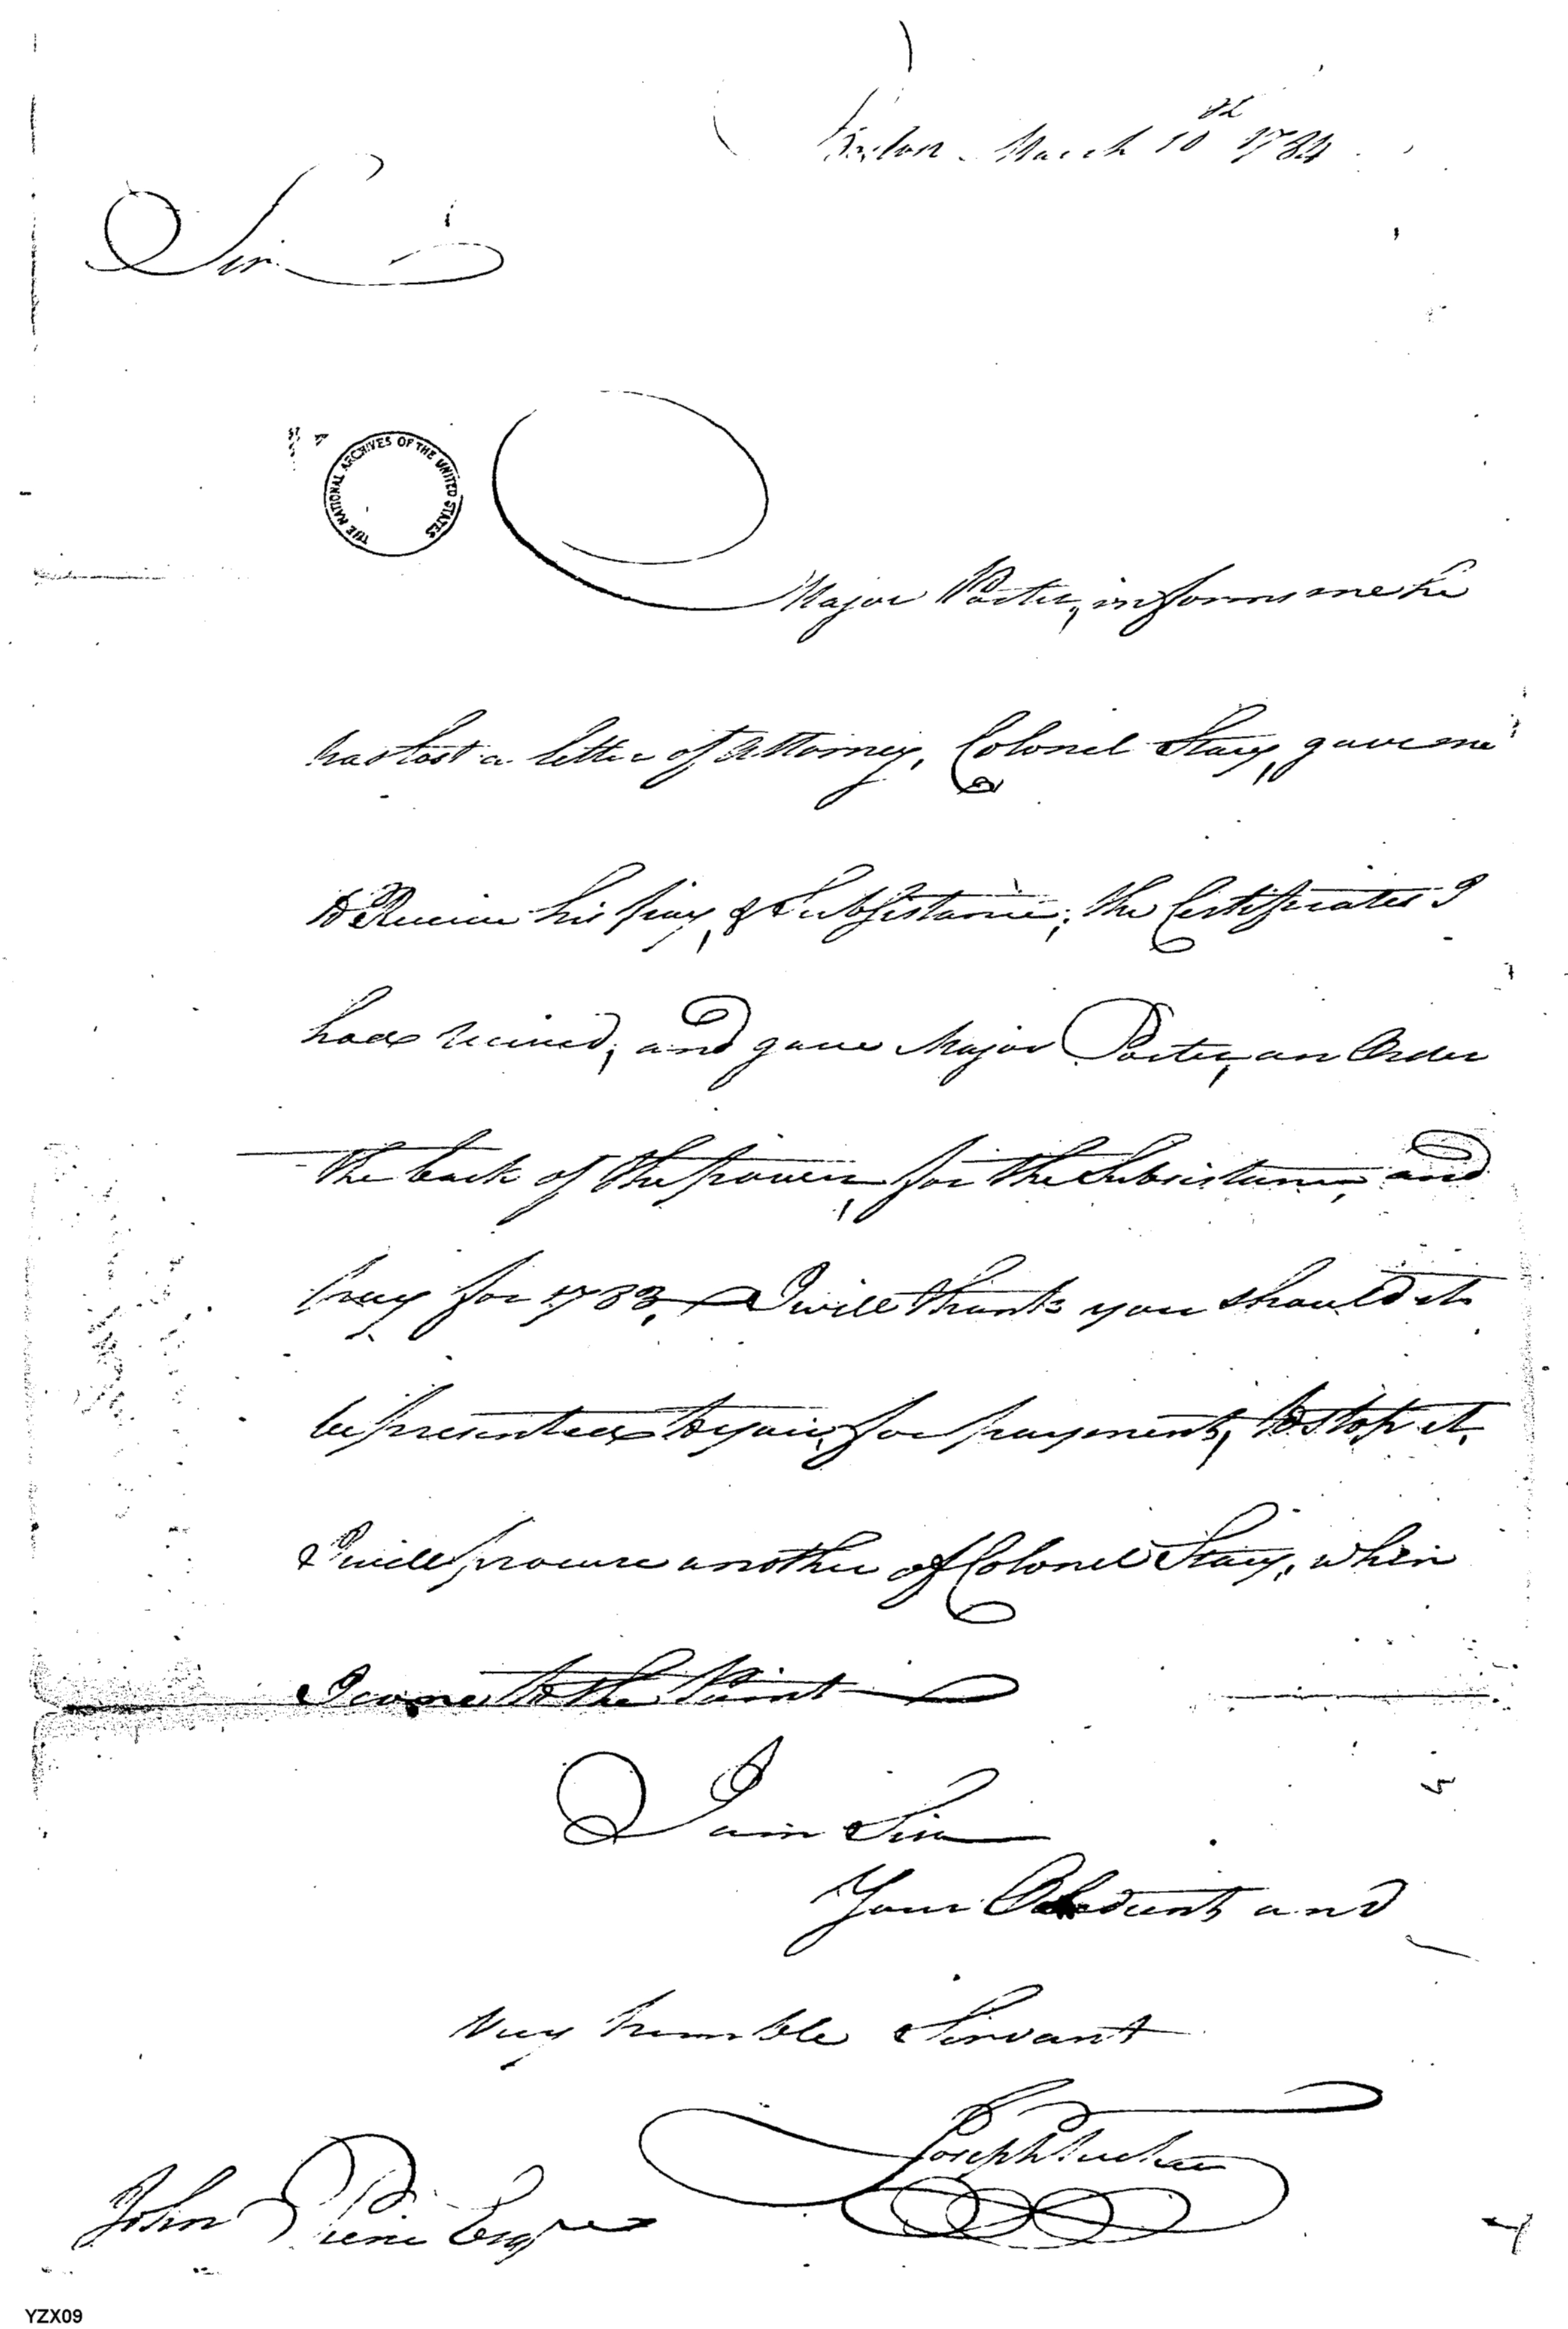 March 10th 1784
Sir
THE NATIONAL ARCHIVES OF THE UNITED STATES
Major Porter, informs me he
has lost a letter of Attorney, Colonel Stacy, gave me
to Receive his pay, & Subsistance; the Certificates I
had received, and gave Major Porter, an Order
the back of the power, for the Subsistance, and
pay for 1783, I will thank you should it
be presented to you, for payment, to stop it.
I will procure another of Colonel Stacy, when
I come to the Point
I am Sir
Your Obedient and
very humble Servant
Joseph Tucker
John Pierce Esqr
YZX09